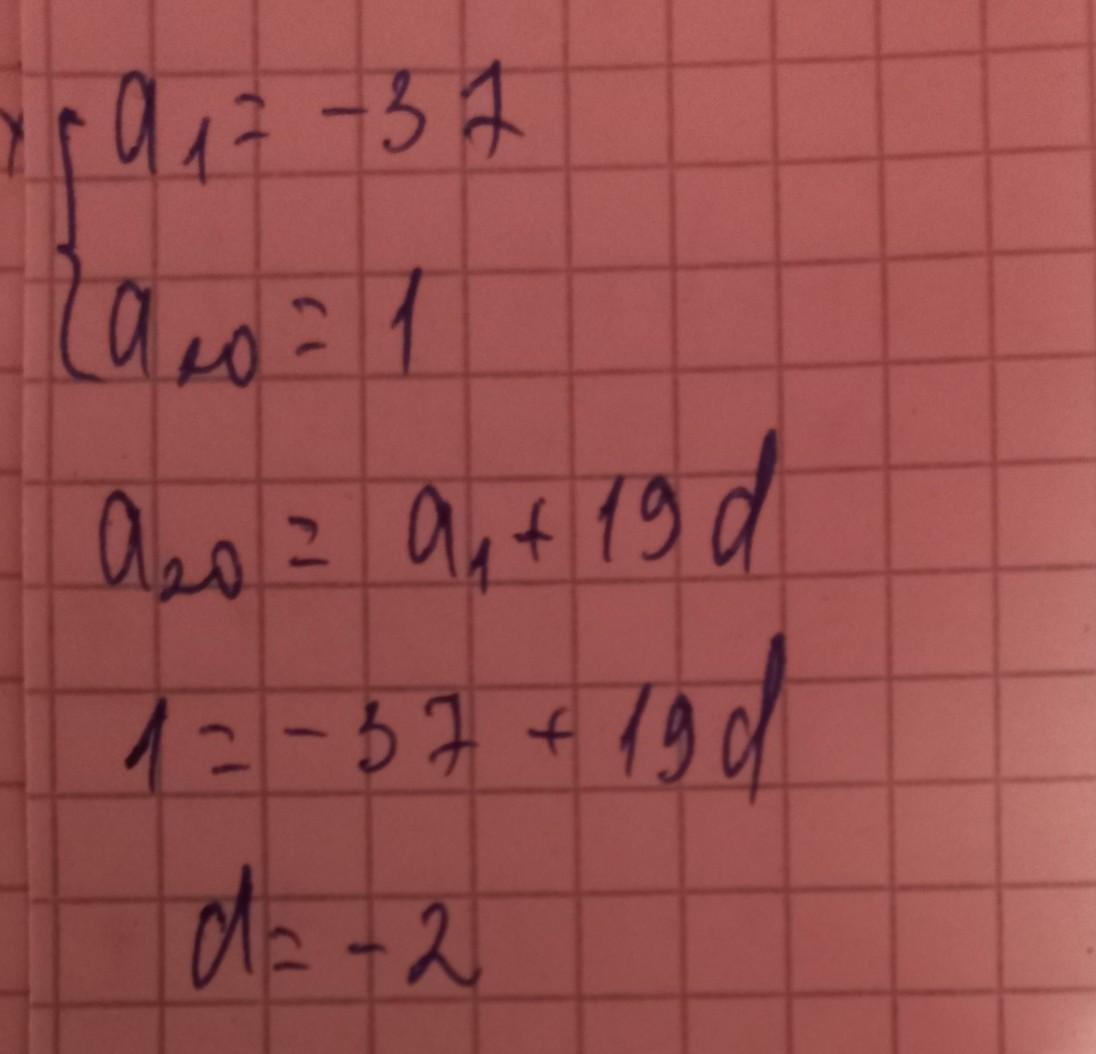 a₁ = -37
a₂₀ = 1
a₂₀ = a₁ + 19d
1 = -37 + 19d
d = -2